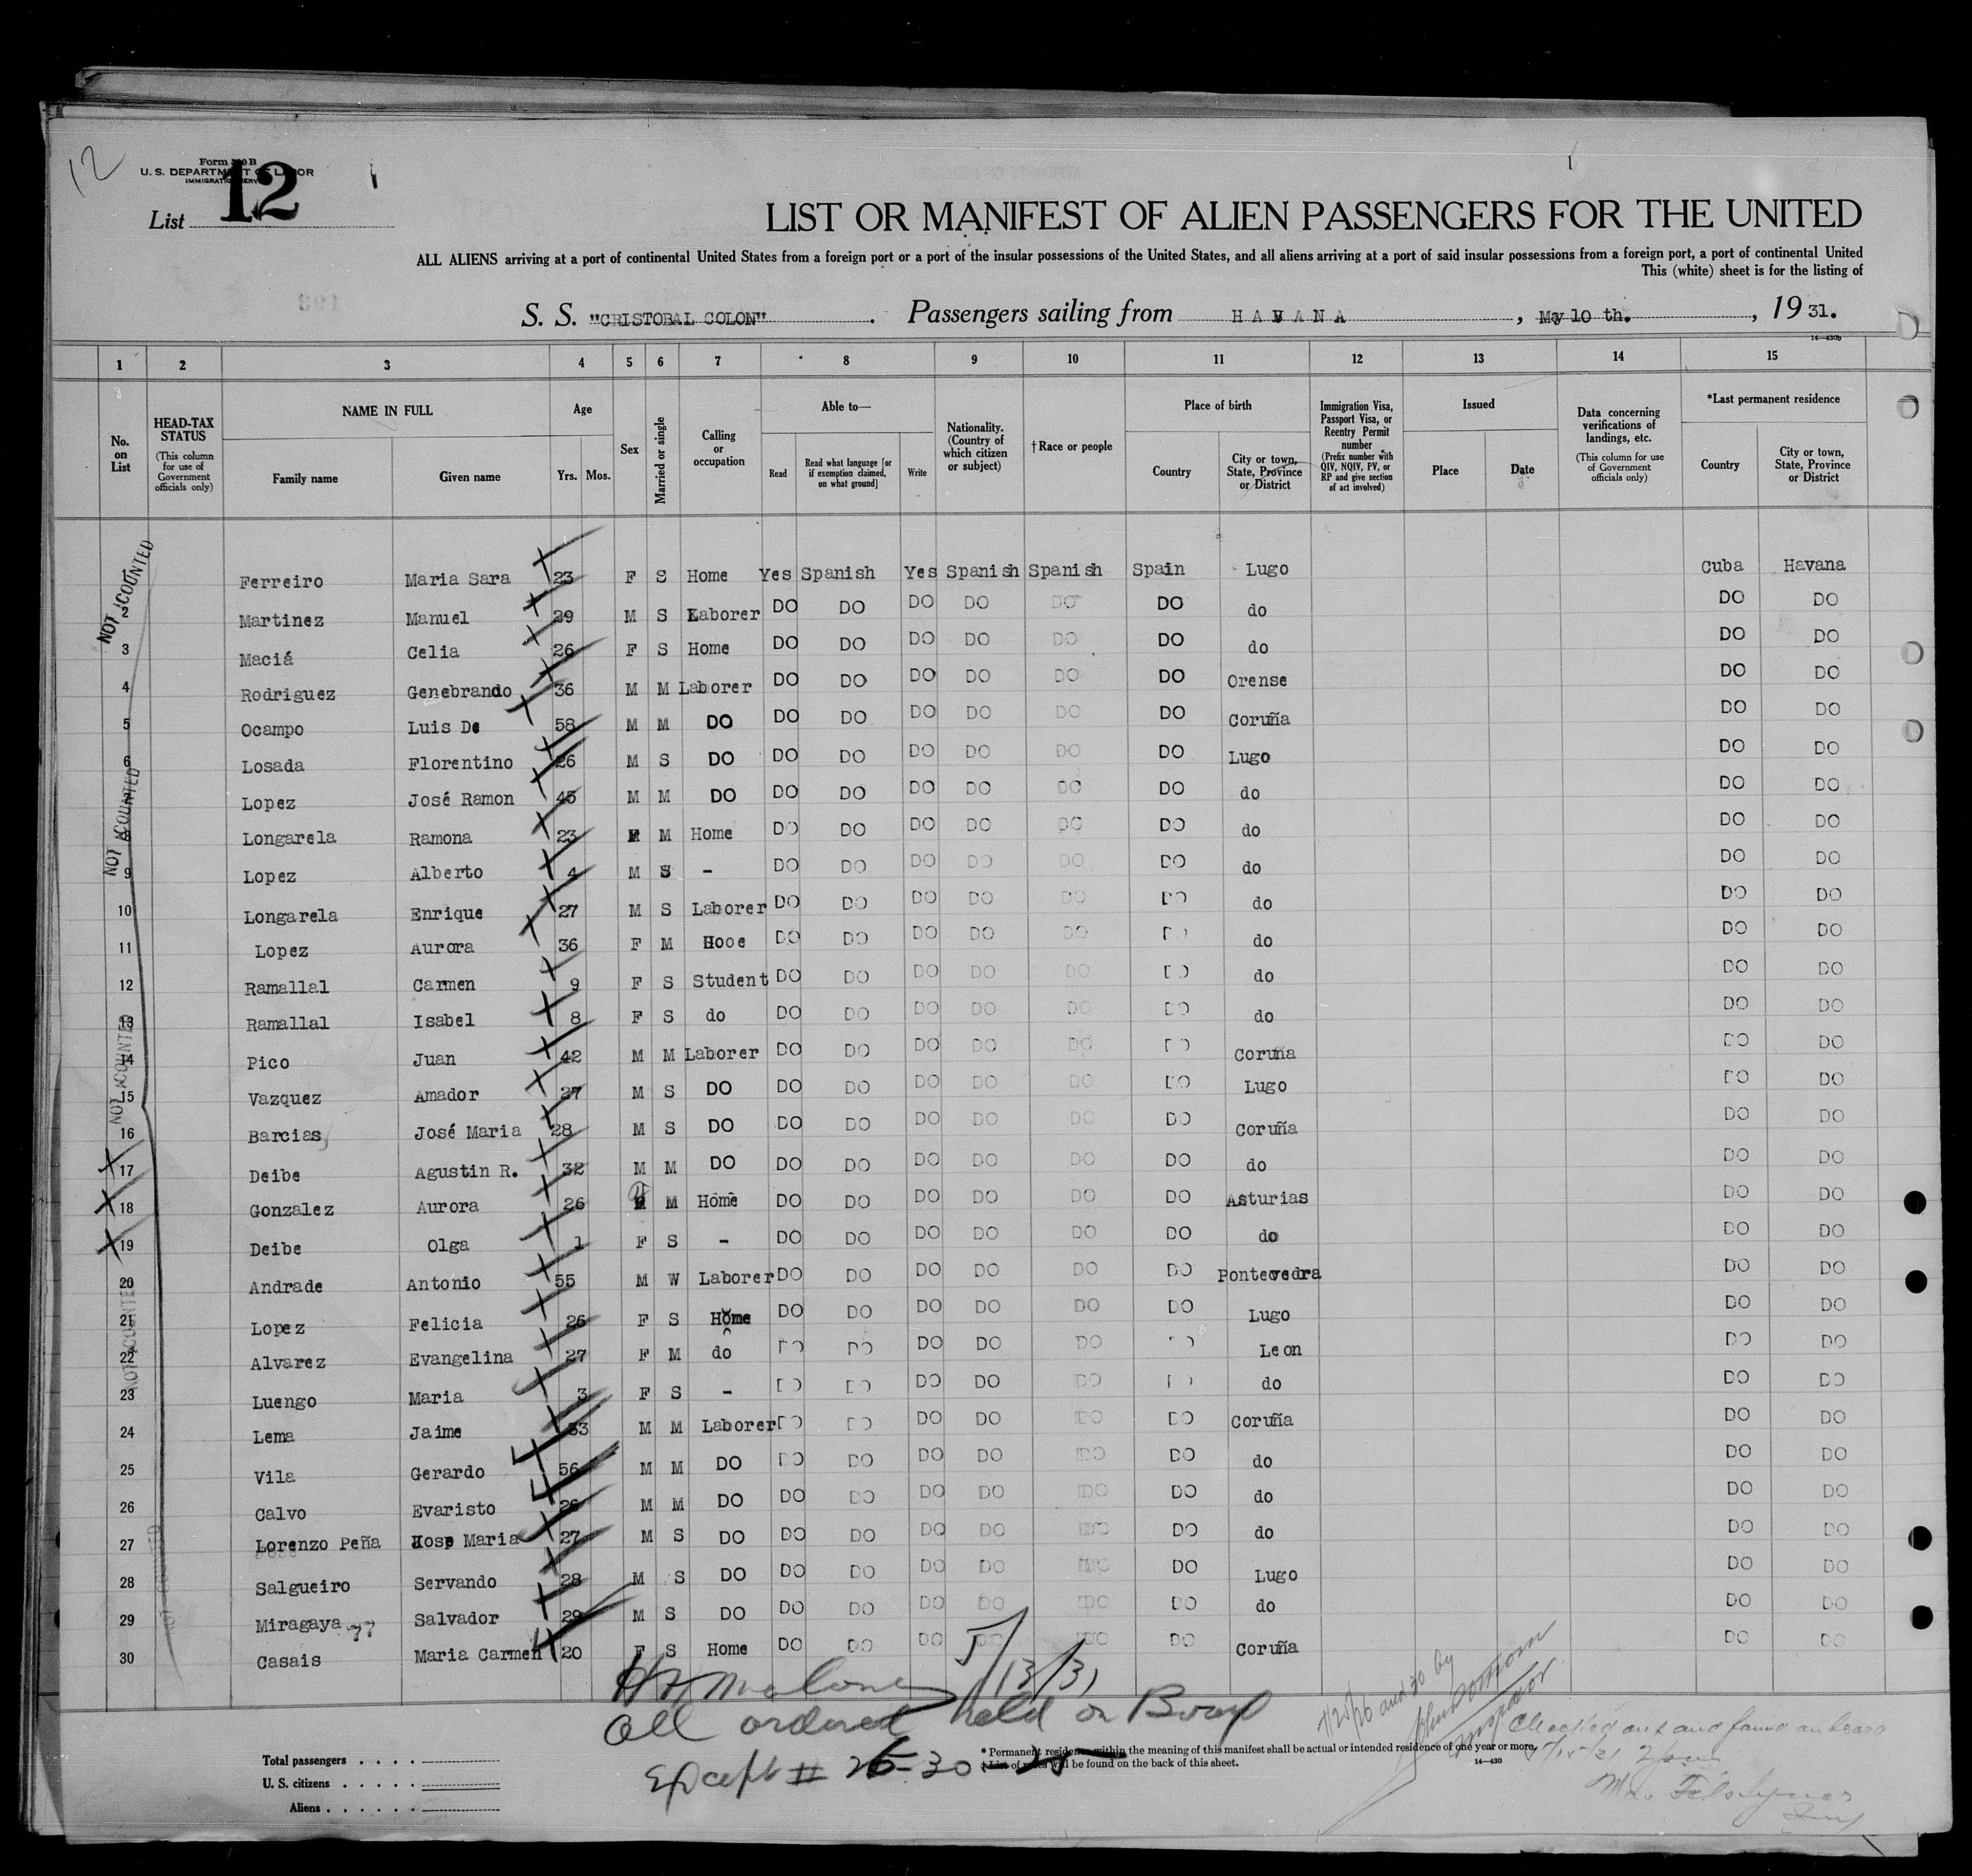 12
Form 500 B
U. S. DEPARTMENT OF LABOR
IMMIGRATION SERVICE
List 12
LIST OR MANIFEST OF ALIEN PASSENGERS FOR THE UNITED
ALL ALIENS arriving at a port of continental United States from a foreign port or a port of the insular possessions of the United States, and all aliens arriving at a port of said insular possessions from a foreign port, a port of continental United
This (white) sheet is for the listing of
S. S. "CRISTOBAL COLON". Passengers sailing from HAVANA, May 10 th., 1931.
14—430b
1 2 3 4 5 6 7 8 9 10 11 12 13 14 15
No. on List
HEAD-TAX STATUS (This column for use of Government officials only)
NAME IN FULL Family name Given name
Age Yrs. Mos.
Sex
Married or single
Calling or occupation
Able to— Read Read what language [or if exemption claimed, on what ground] Write
Nationality. (Country of which citizen or subject)
† Race or people
Place of birth Country City or town, State, Province or District
Immigration Visa, Passport Visa, or Reentry Permit number (Prefix number with QIV, NQIV, PV, or RP and give section of act involved)
Issued Place Date
Data concerning verifications of landings, etc. (This column for use of Government officials only)
*Last permanent residence Country City or town, State, Province or District
NOT COUNTED
Ferreiro Maria Sara 23 F S Home Yes Spanish Yes Spanish Spanish Spain Lugo Cuba Havana
2 Martinez Manuel 29 M S Laborer DO DO DO DO DO DO do DO DO
3 Maciá Celia 26 F S Home DO DO DO DO DO DO do DO DO
4 Rodriguez Genebrando 36 M M Laborer DO DO DO DO DO DO Orense DO DO
5 Ocampo Luis De 58 M M DO DO DO DO DO DO DO Coruña DO DO
6 Losada Florentino 26 M S DO DO DO DO DO DO DO Lugo DO DO
7 Lopez José Ramon 45 M M DO DO DO DO DO DO DO do DO DO
NOT COUNTED
8 Longarela Ramona 23 F M Home DO DO DO DO DO DO do DO DO
9 Lopez Alberto 4 M S - DO DO DO DO DO DO do DO DO
10 Longarela Enrique 27 M S Laborer DO DO DO DO DO DO do DO DO
11 Lopez Aurora 36 F M Hooe DO DO DO DO DO DO do DO DO
12 Ramallal Carmen 9 F S Student DO DO DO DO DO DO do DO DO
13 Ramallal Isabel 8 F S do DO DO DO DO DO DO do DO DO
NOT COUNTED
14 Pico Juan 42 M M Laborer DO DO DO DO DO DO Coruña DO DO
15 Vazquez Amador 27 M S DO DO DO DO DO DO DO Lugo DO DO
16 Barcias José Maria 28 M S DO DO DO DO DO DO DO Coruña DO DO
17 Deibe Agustin R. 32 M M DO DO DO DO DO DO DO do DO DO
18 Gonzalez Aurora 26 F M Home DO DO DO DO DO DO Asturias DO DO
19 Deibe Olga 1 F S - DO DO DO DO DO DO do DO DO
20 Andrade Antonio 55 M W Laborer DO DO DO DO DO DO Pontevedra DO DO
NOT COUNTED
21 Lopez Felicia 26 F S Home DO DO DO DO DO DO Lugo DO DO
22 Alvarez Evangelina 27 F M do DO DO DO DO DO DO Leon DO DO
23 Luengo Maria 3 F S - DO DO DO DO DO DO do DO DO
24 Lema Jaime 33 M M Laborer DO DO DO DO DO DO Coruña DO DO
25 Vila Gerardo 56 M M DO DO DO DO DO DO DO do DO DO
26 Calvo Evaristo 26 M M DO DO DO DO DO DO DO do DO DO
27 Lorenzo Peña Jose Maria 27 M S DO DO DO DO DO DO DO do DO DO
28 Salgueiro Servando 28 M S DO DO DO DO DO DO DO Lugo DO DO
29 Miragaya Salvador 29 M S DO DO DO DO DO DO DO do DO DO
30 Casais Maria Carmen 20 F S Home DO DO DO DO DO DO Coruña DO DO
Malone 5/13/31
All ordered held on Board
Except # 26-30 - 25
26 and 30 by
Inspector
Checked out and found on board
5/15/31
Total passengers . . . .
U. S. citizens . . . . .
Aliens . . . . . .
* Permanent residence within the meaning of this manifest shall be actual or intended residence of one year or more.
† List of races will be found on the back of this sheet.
14—430